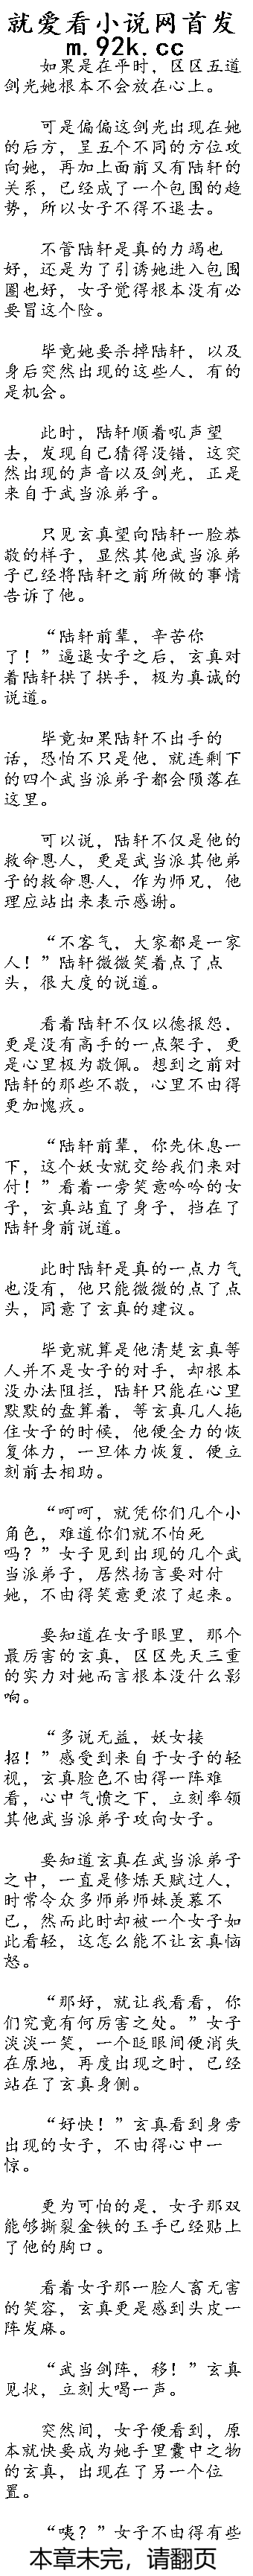 就爱看小说网首发
m.92k.cc
如果是在平时，区区五道
剑光她根本不会放在心上。
可是偏偏这剑光出现在她
的后方，呈五个不同的方位攻
向她，再加上面前又有陆轩的
关系，已经成了一个包围的趋
势，所以女子不得不退去。
不管陆轩是真的力竭也
好，还是为了引诱她进入包围
圈也好，女子觉得根本没有必
要冒这个险。
毕竟她要杀掉陆轩，以及
身后突然出现的这些人，有的
是机会。
此时，陆轩顺着吼声望
去，发现自己猜得没错，这突
然出现的声音以及剑光，正是
来自于武当派弟子。
只见玄真望向陆轩一脸恭
敬的样子，显然其他武当派弟
子已经将陆轩之前所做的事情
告诉了他。
“陆轩前辈，辛苦你
了！”逼退女子之后，玄真对
着陆轩拱了拱手，极为真诚的
说道。
毕竟如果陆轩不出手的
话，恐怕不只是他，就连剩下
的四个武当派弟子都会陨落在
这里。
可以说，陆轩不仅是他的
救命恩人，更是武当派其他弟
子的救命恩人，作为师兄，他
理应站出来表示感谢。
“不客气，大家都是一家
人！”陆轩微微笑着点了点
头，很大度的说道。
看着陆轩不仅以德报怨，
更是没有高手的一点架子，更
是心里极为敬佩。想到之前对
陆轩的那些不敬，心里不由得
更加愧疚。
“陆轩前辈，你先休息一
下，这个妖女就交给我们来对
付！”看着一旁笑意吟吟的女
子，玄真站直了身子，挡在了
陆轩身前说道。
此时陆轩是真的一点力气
也没有，他只能微微的点了点
头，同意了玄真的建议。
毕竟就算是他清楚玄真等
人并不是女子的对手，却根本
没办法阻拦，陆轩只能在心里
默默的盘算着，等玄真几人拖
住女子的时候，他便全力的恢
复体力，一旦体力恢复，便立
刻前去相助。
“呵呵，就凭你们几个小
角色，难道你们就不怕死
吗？”女子见到出现的几个武
当派弟子，居然扬言要对付
她，不由得笑意更浓了起来。
要知道在女子眼里，那个
最厉害的玄真，区区先天三重
的实力对她而言根本没什么影
响。
“多说无益，妖女接
招！”感受到来自于女子的轻
视，玄真脸色不由得一阵难
看，心中气愤之下，立刻率领
其他武当派弟子攻向女子。
要知道玄真在武当派弟子
之中，一直是修炼天赋过人，
时常令众多师弟师妹羡慕不
已，然而此时却被一个女子如
此看轻，这怎么能不让玄真恼
怒。
“那好，就让我看看，你
们究竟有何厉害之处。”女子
淡淡一笑，一个眨眼间便消失
在原地，再度出现之时，已经
站在了玄真身侧。
“好快！”玄真看到身旁
出现的女子，不由得心中一
惊。
更为可怕的是，女子那双
能够撕裂金铁的玉手已经贴上
了他的胸口。
看着女子那一脸人畜无害
的笑容，玄真更是感到头皮一
阵发麻。
“武当剑阵，移！”玄真
见状，立刻大喝一声。
突然间，女子便看到，原
本就快要成为她手里囊中之物
的玄真，出现在了另一个位
置。
“咦？”女子不由得有些
本章未完，请翻页